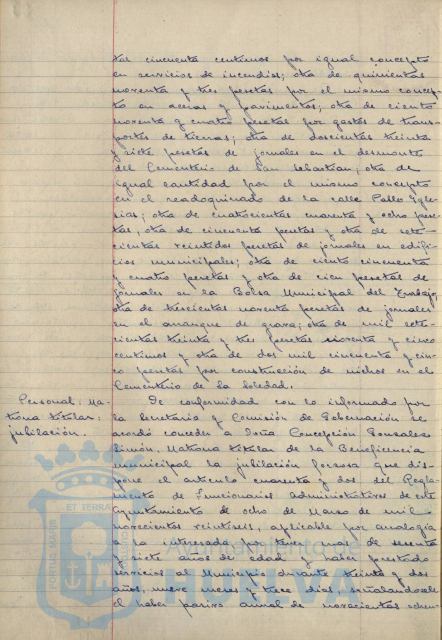 tas cincuenta centimos por igual concepto
en servicios de incendios; otra de quinientas
noventa y tres pesetas por el mismo concep-
to en aceras y pavimentos; otra de ciento
noventa y cuatro pesetas por gastos de trans-
portes de tierras; otra de doscientas treinta
y siete pesetas de jornales en el desmonte
del Cementerio de San Sebastian; otra de
igual cantidad por el mismo concepto
en el readoquinado de la calle Pablo Igle-
sias; otra de cuatrocientas cuarenta y ocho pese-
tas, otra de cincuenta pesetas y otra de sete-
cientas veintidos pesetas de jornales en edifi-
cios municipales; otra de ciento cincuenta
y cuatro pesetas y otra de cien pesetas de
jornales en la Bolsa Municipal del Trabajo,
otra de trescientas noventa pesetas de jornales
en el arranque de grava; otra de mil sete-
cientas treinta y tres pesetas noventa y cinco
centimos y otra de dos mil cincuenta y cin-
co pesetas por construcción de nichos en el
Cementerio de la Soledad.
Personal: Ma-
trona titular:
jubilación.
De conformidad con lo informado por
la Secretaria y Comisión de Gobernación se
acordó conceder a Doña Concepción Gonzalez
Simón, Matrona titular de la Beneficencia
municipal la jubilación forzosa que dis-
pone el articulo cuarenta y dos del Regla-
mento de Funcionarios Administrativos de este
Ayuntamiento de ocho de Marzo de mil
novecientos veintiseis, aplicable por analogia
a la interesada, por tener mas de sesenta
y siete años de edad y haber prestado
servicios al Municipio durante treinta y dos
años, nueve meses y trece dias, señalandosele
el haber pasivo anual de novecientas ochen-
PORTUS MARIS
ET TERRAE
Ayuntamiento de
HUELVA